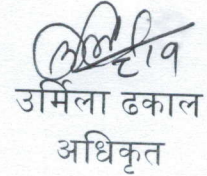 उर्मिला ढकाल
अधिकृत